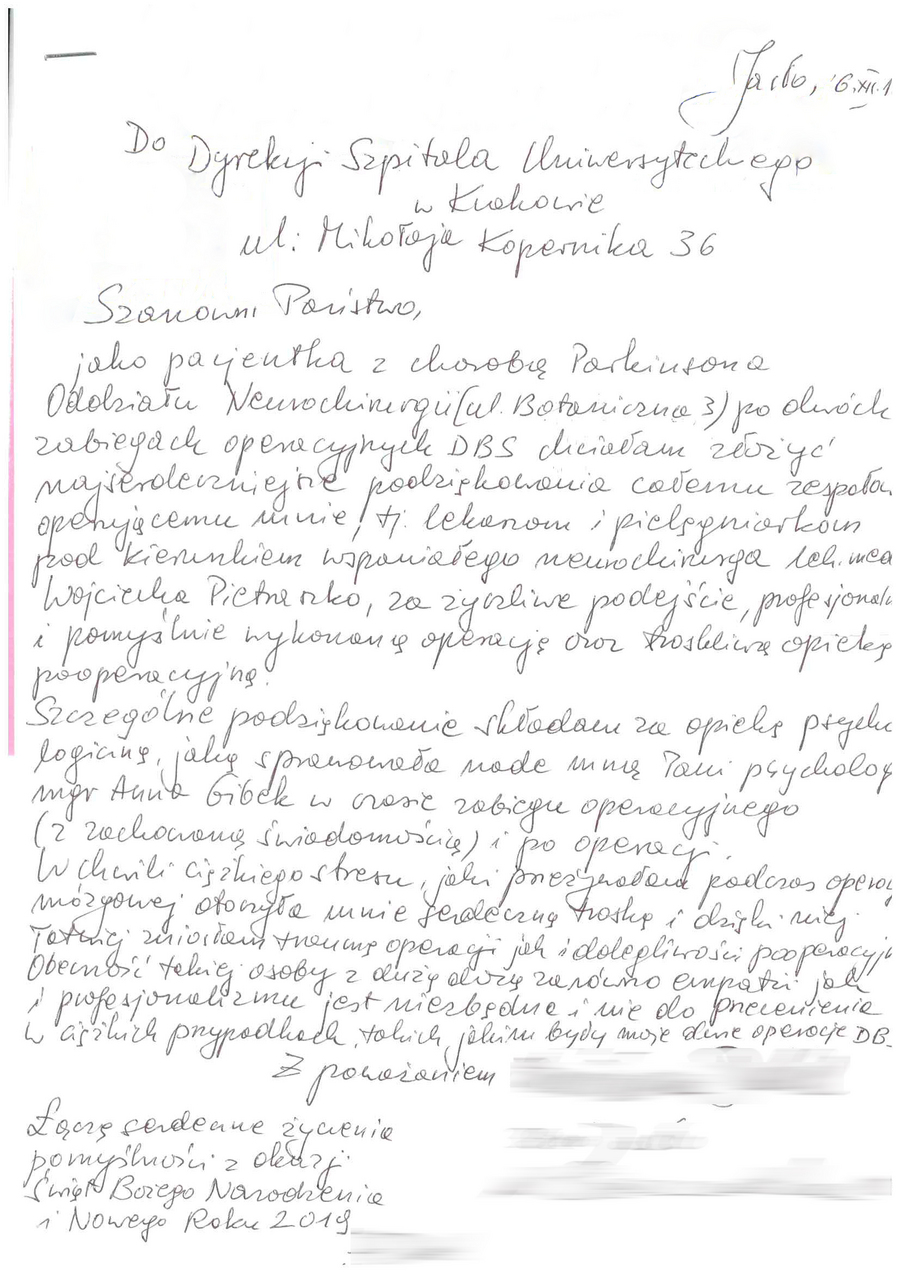 Jasło, 6.XII.1
Do Dyrekcji Szpitala Uniwersyteckiego
w Krakowie
ul. Mikołaja Kopernika 36
Szanowni Państwo,
jako pacjentka z chorobą Parkinsona
Oddziału Neurochirurgii (ul. Botaniczna 3) po dwóch
zabiegach operacyjnych DBS chciałam złożyć
najserdeczniejsze podziękowania całemu zespoło
operującemu mnie, tj. lekarzom i pielęgniarkom
pod kierunkiem wspaniałego neurochirurga lek. med
Wojciecha Pietraszko, za życzliwe podejście, profesjonaln
i pomyślnie wykonaną operację oraz troskliwą opiekę
pooperacyjną.
Szczególne podziękowanie składam za opiekę psycho
logiczną, jaką sprawowała nade mną Pani psycholog
mgr Anna Gibek w czasie zabiegu operacyjnego
(z zachowaną świadomością) i po operacji.
W chwili ciężkiego stresu, jaki przeżywałam podczas operac
mózgowej otoczyła mnie serdeczną troską i dzięki niej
łatwiej zniosłam traumę operacji jak i dolegliwości pooperacyjn
Obecność takiej osoby z dużą dozą zarówno empatii jak
i profesjonalizmu jest niezbędna i nie do przecenienia
w ciężkich przypadkach, takich, jakimi były moje dwie operacje DB
Z poważaniem
Łączę serdeczne życzenia
pomyślności z okazji
Świąt Bożego Narodzenia
i Nowego Roku 2019